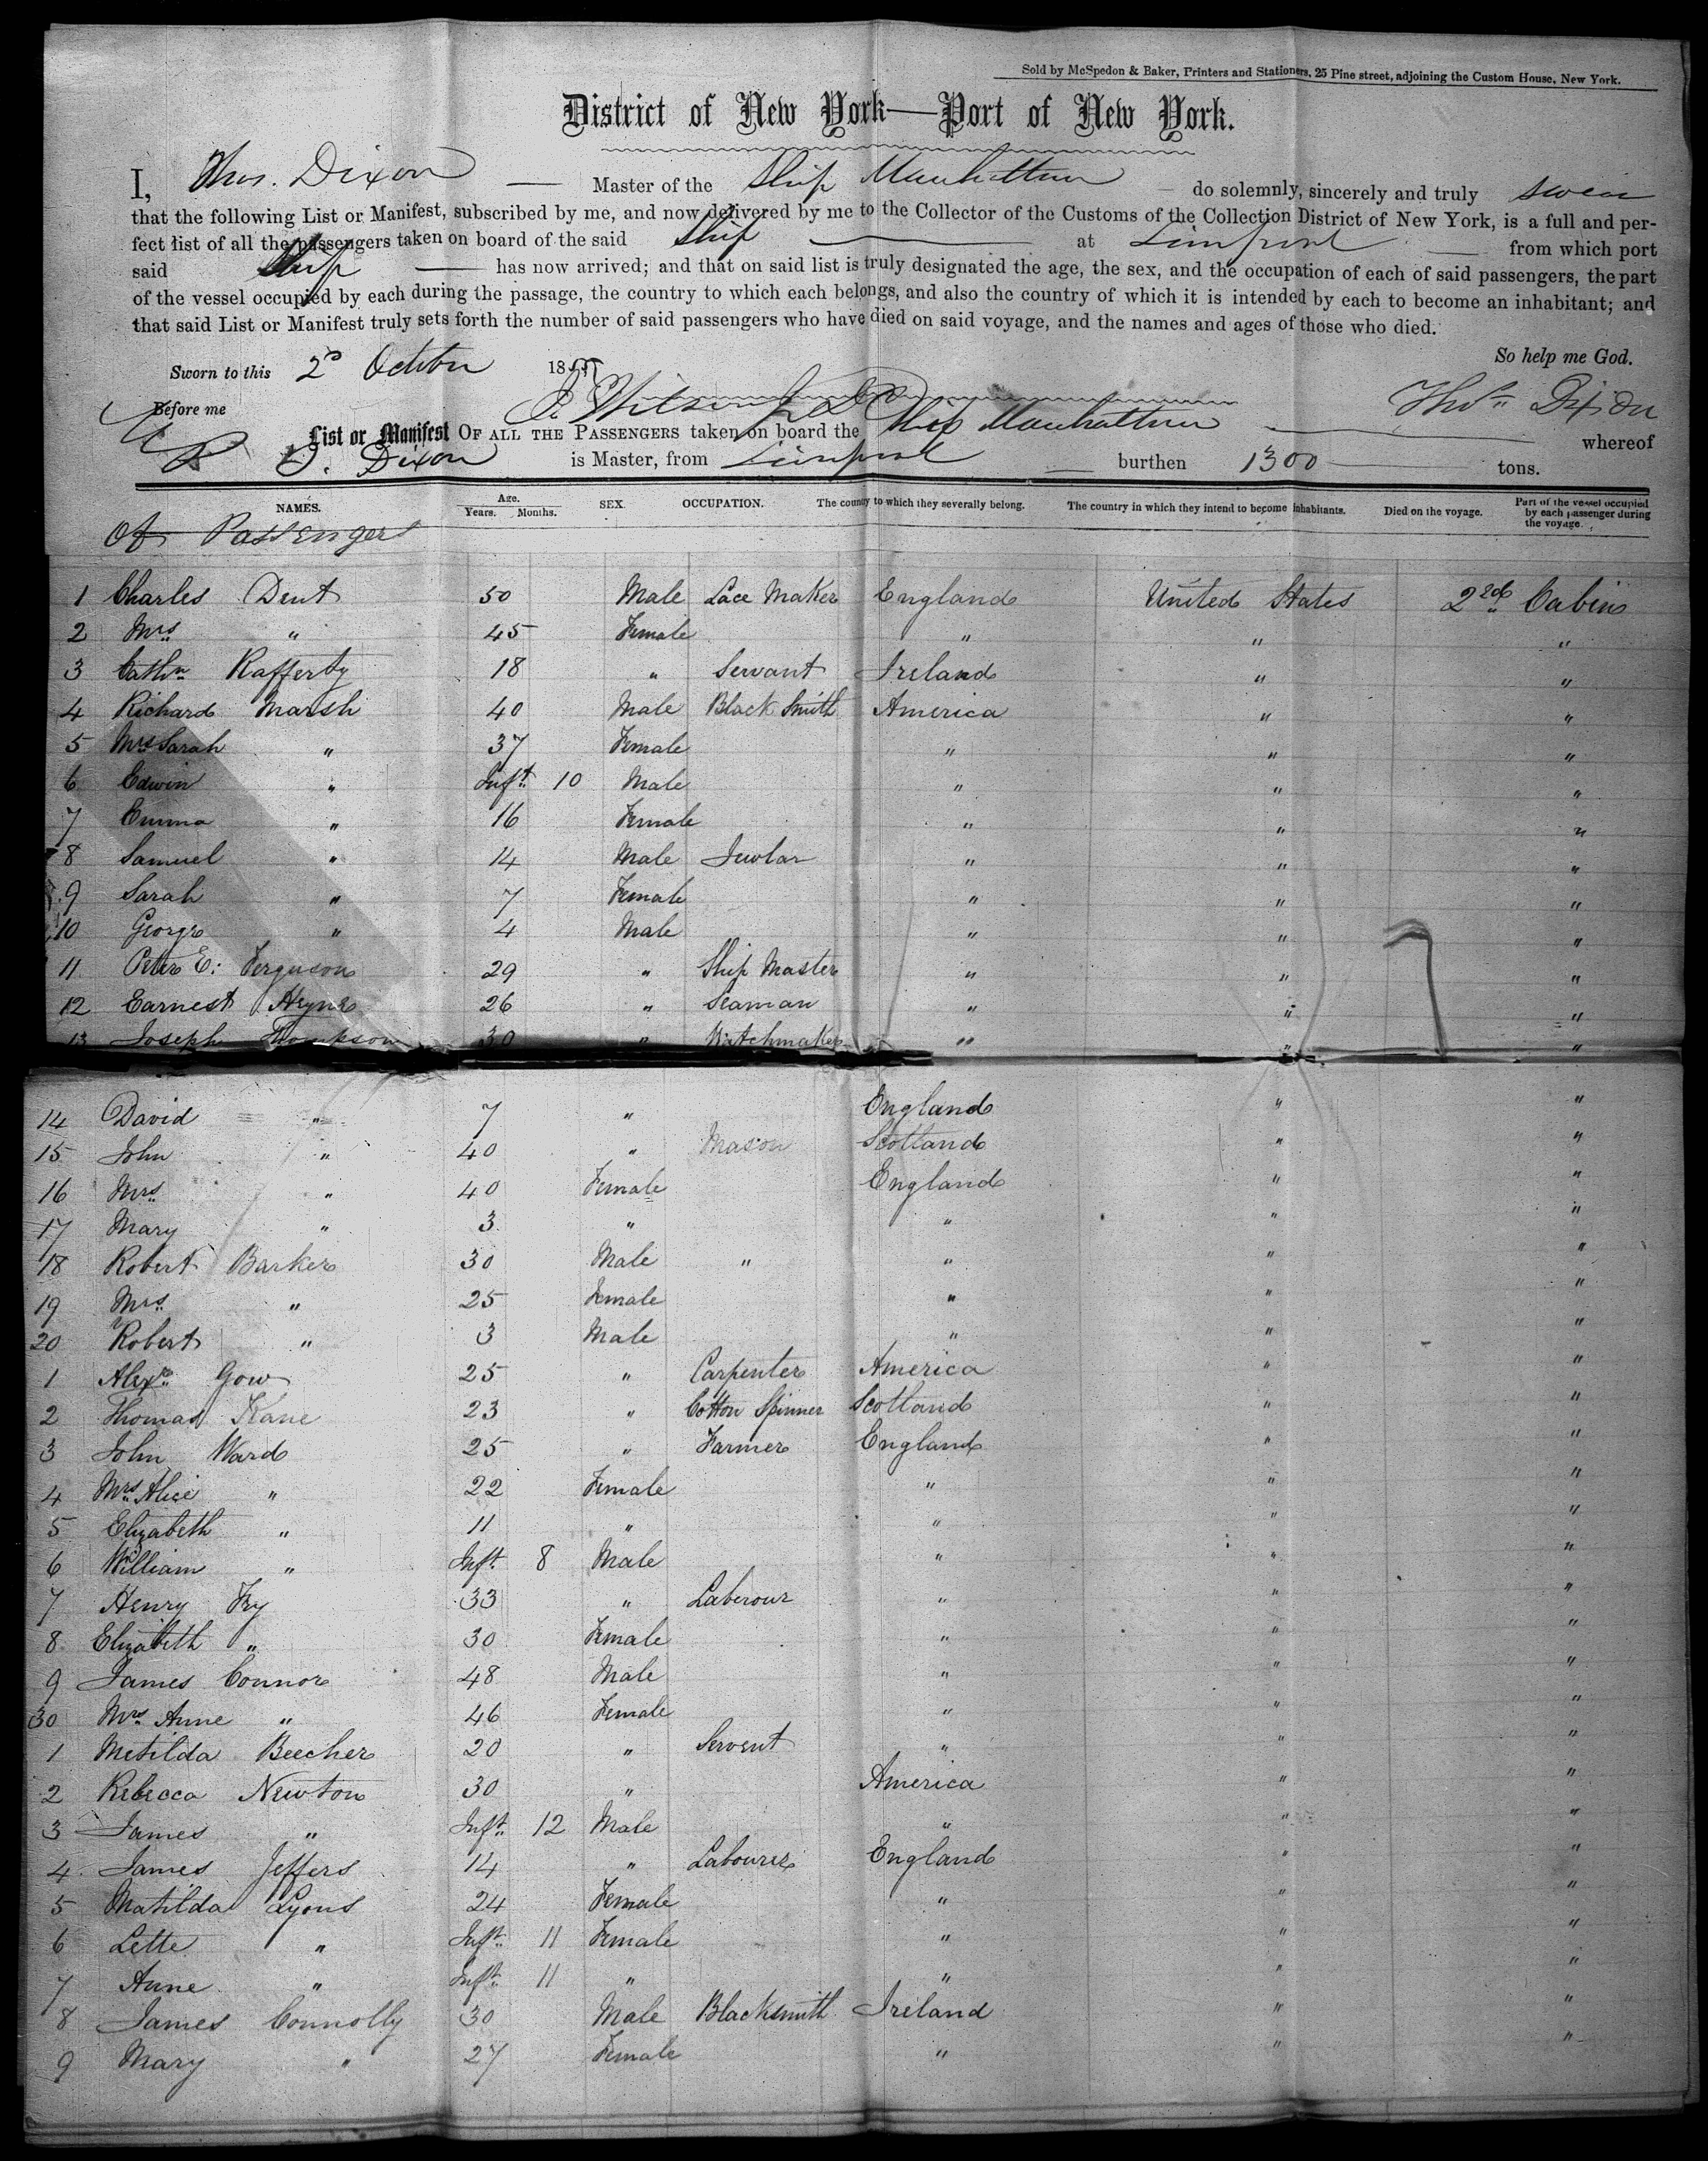 Sold by McSpedon & Baker, Printers and Stationers, 25 Pine street, adjoining the Custom House, New York.
District of New York—Port of New York.
I, Thos. Dixon — Master of the Ship Manhattan — do solemnly, sincerely and truly swear
that the following List or Manifest, subscribed by me, and now delivered by me to the Collector of the Customs of the Collection District of New York, is a full and per-
fect list of all the passengers taken on board of the said Ship — at Liverpool — from which port
said Ship — has now arrived; and that on said list is truly designated the age, the sex, and the occupation of each of said passengers, the part
of the vessel occupied by each during the passage, the country to which each belongs, and also the country of which it is intended by each to become an inhabitant; and
that said List or Manifest truly sets forth the number of said passengers who have died on said voyage, and the names and ages of those who died.
So help me God.
Sworn to this 2d October 185
Before me
Thos Dixon
List or Manifest OF ALL THE PASSENGERS taken on board the Ship Manhattan — whereof
Dixon is Master, from Liverpool — burthen 1300 — tons.
NAMES. Age. Years. Months. SEX. OCCUPATION. The country to which they severally belong. The country in which they intend to become inhabitants. Died on the voyage. Part of the vessel occupied by each passenger during the voyage.
Of Passengers
1 Charles Dent 50 Male Lace Maker England United States 2nd Cabin
2 Mrs " 45 Female " " "
3 Cathn Rafferty 18 " Servant Ireland " "
4 Richard Marsh 40 Male Black Smith America " "
5 Mrs Sarah " 37 Female " " "
6 Edwin " Inft 10 Male " " "
7 Emma " 16 Female " " "
8 Samuel " 14 Male Jewlar " " "
9 Sarah " 7 Female " " "
10 George " 4 Male " " "
11 Peter E. Ferguson 29 " Ship Master " " "
12 Earnest Heyne 26 " Seaman " " "
13 Joseph Thompson 30 " Watchmaker " " "
14 David " 7 " England " "
15 John " 40 " Mason Scotland " "
16 Mrs " 40 Female England " "
17 Mary " 3 " " " "
18 Robert Barker 30 Male " " " "
19 Mrs " 25 Female " " "
20 Robert " 3 Male " " "
1 Alexr Gow 25 " Carpenter America " "
2 Thomas Kane 23 " Cotton Spinner Scotland " "
3 John Ward 25 " Farmer England " "
4 Mrs Alice " 22 Female " " "
5 Elizabeth " 11 " " " "
6 William " Inft 8 Male " " "
7 Henry Fry 33 " Laberour " " "
8 Elizabeth " 30 Female " " "
9 James Connor 48 Male " " "
30 Mrs Anne " 46 Female " " "
1 Metilda Beecher 20 " Servent " " "
2 Rebecca Newton 30 " America " "
3 James " Inft 12 Male " " "
4 James Jeffers 14 " Labourer England " "
5 Matilda Lyons 24 Female " " "
6 Lette " Inft 11 Female " " "
7 Anne " Inft 11 " " " "
8 James Connolly 30 Male Blacksmith Ireland " "
9 Mary " 27 Female " " "